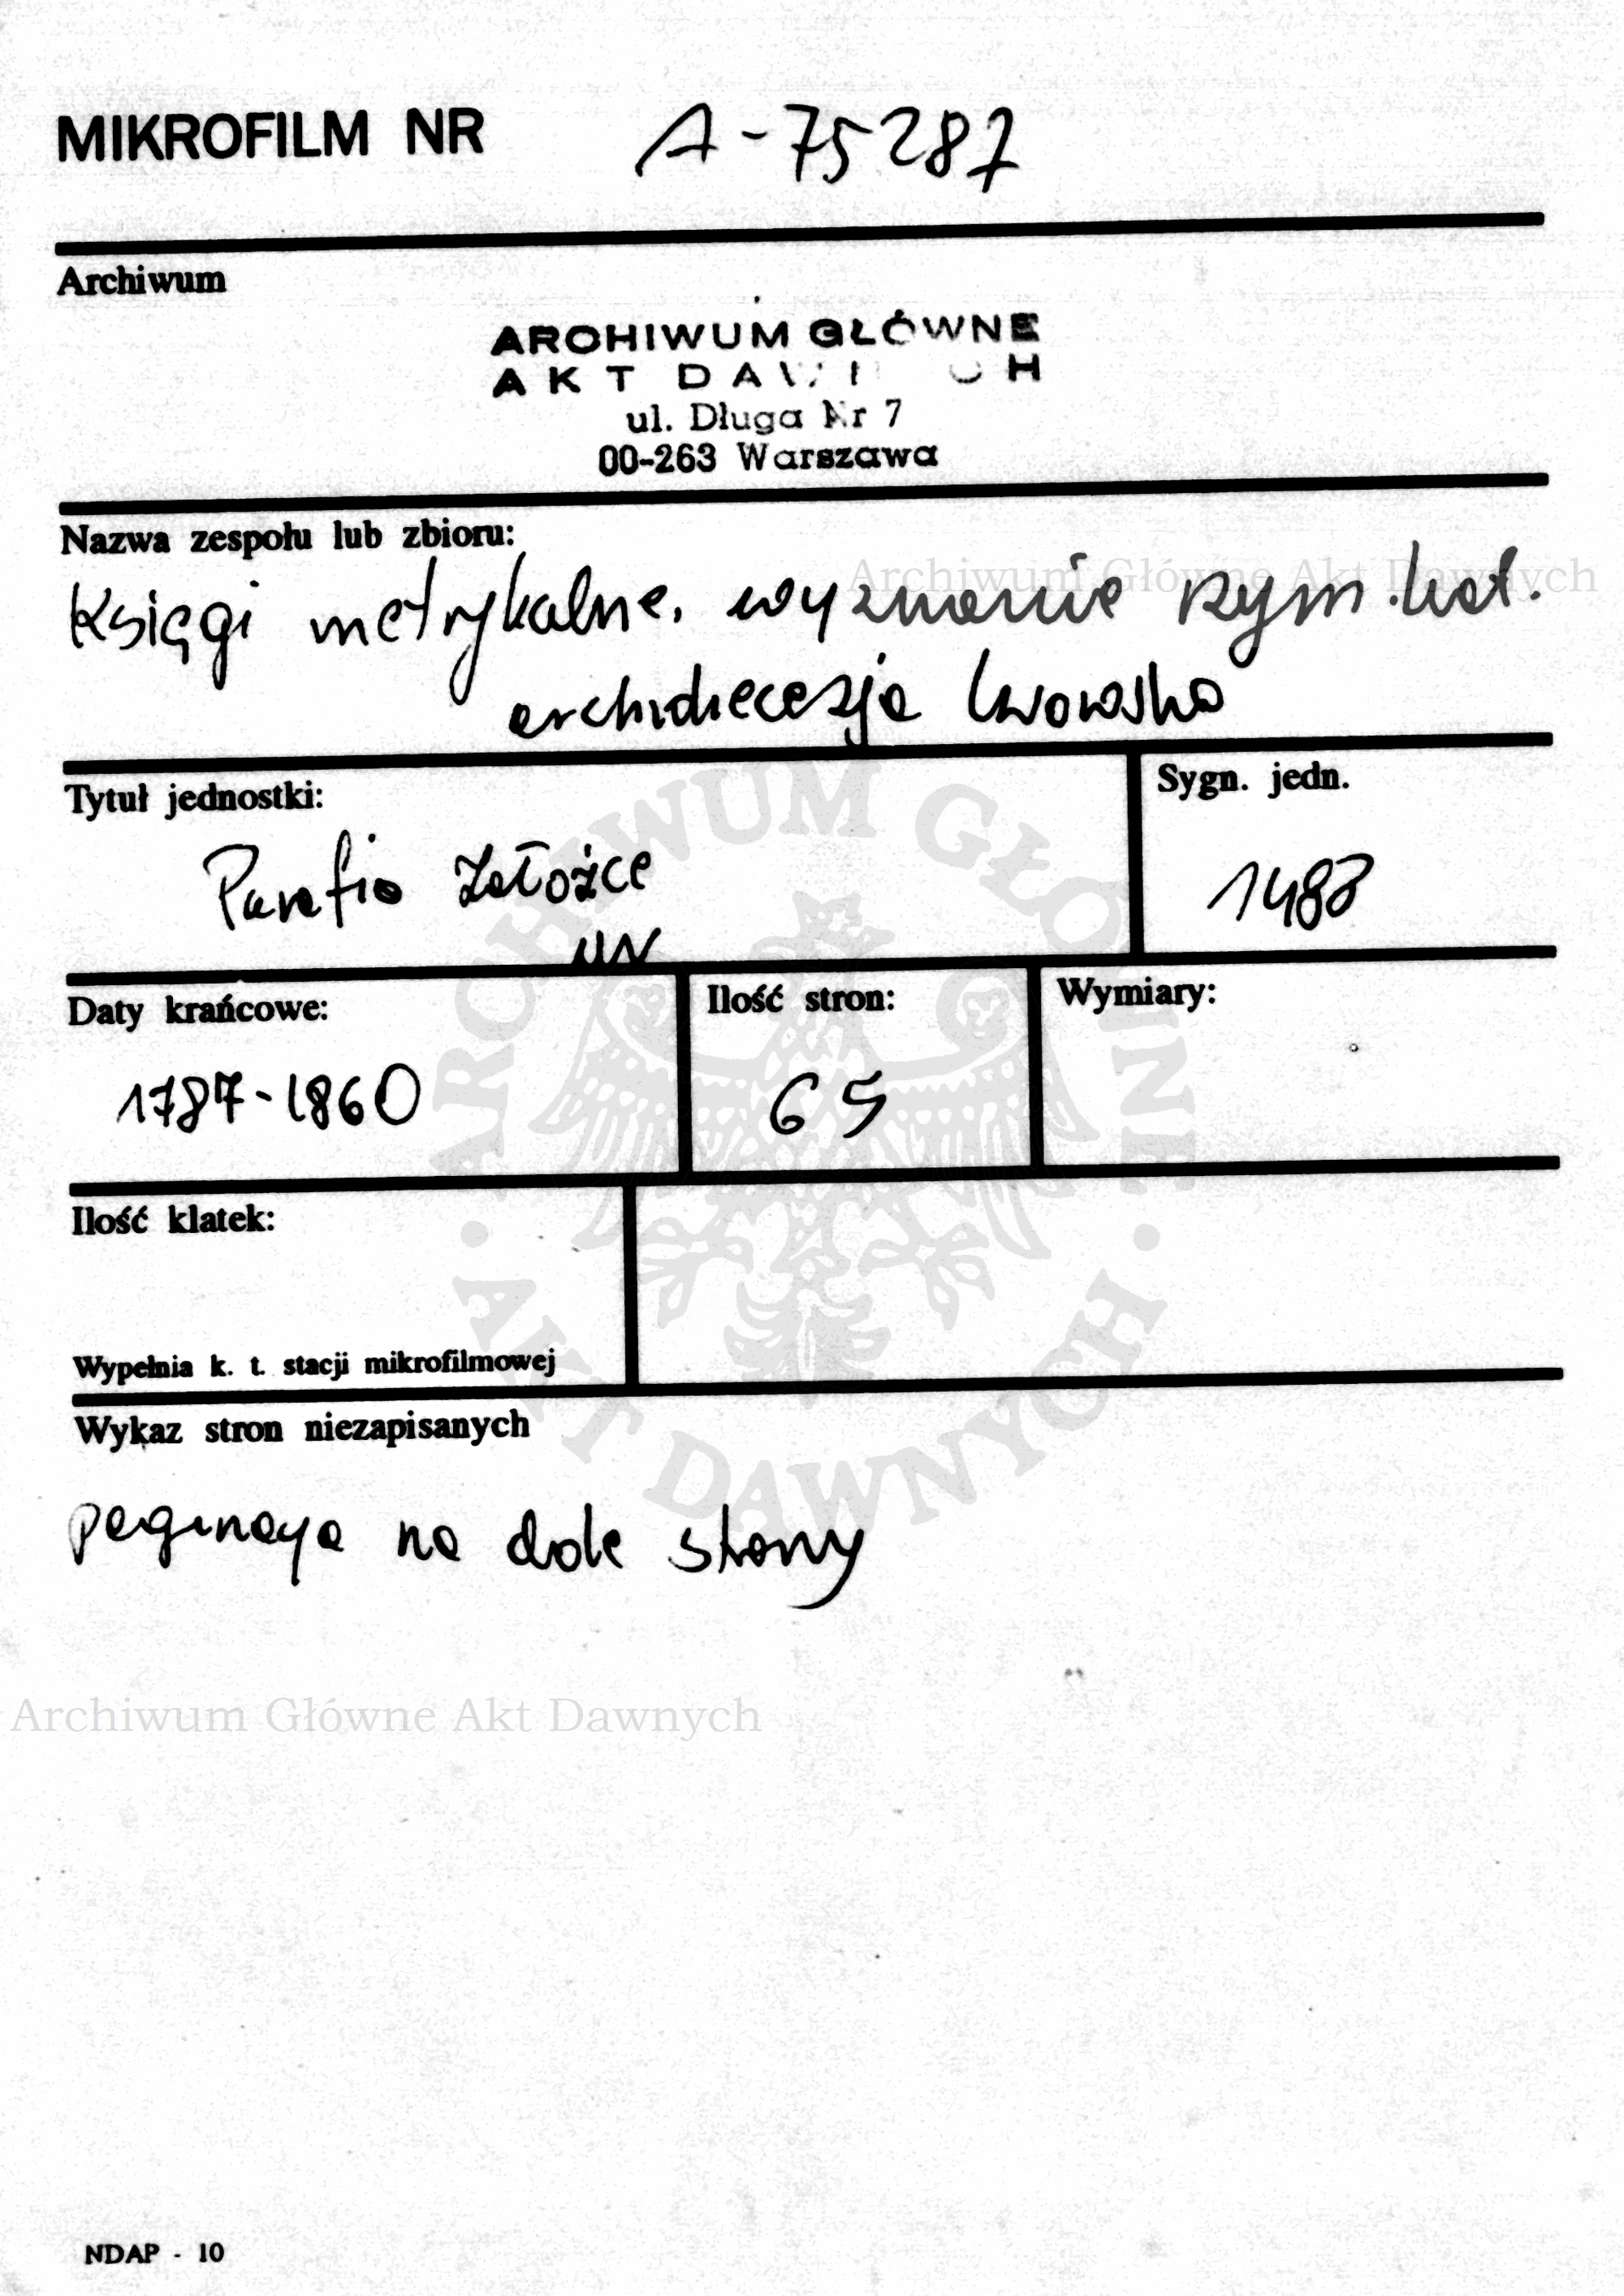 MIKROFILM NR A-75287
Archiwum
ARCHIWUM GŁÓWNE
AKT DAWNYCH
ul. Długa Nr 7
00-263 Warszawa
Nazwa zespołu lub zbioru:
Archiwum Główne Akt Dawnych
Księgi metrykalne, wyznanie rzym.kat.
archidiecezja lwowska
Tytuł jednostki:
Sygn. jedn.
Parafia Załoźce
UN
1488
Daty krańcowe:
Ilość stron:
Wymiary:
1787-1860
65
Ilość klatek:
Wypełnia k. t. stacji mikrofilmowej
Wykaz stron niezapisanych
paginacja na dole strony
Archiwum Główne Akt Dawnych
ARCHIWUM GŁÓWNE · AKT DAWNYCH ·
NDAP - 10